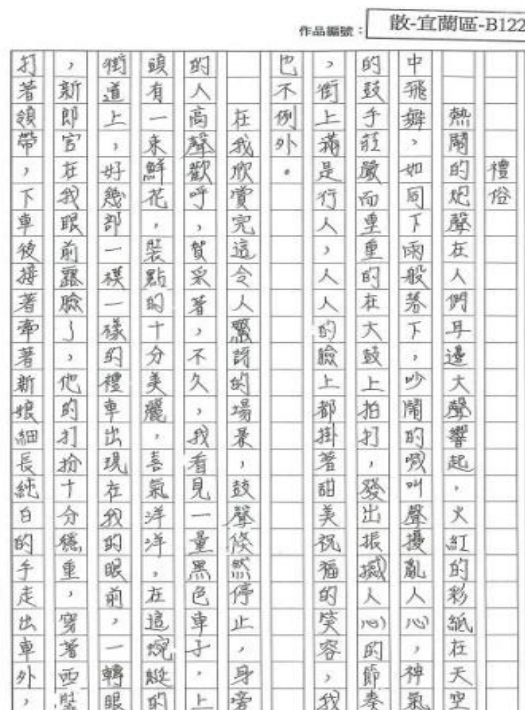 作品編號：
散-宜蘭區-B122
禮俗
熱鬧的炮聲在人們耳邊大聲響起，火紅的彩紙在天空
中飛舞，如同下雨般落下，吵鬧的喊叫聲擾亂人心，神氣
的鼓手莊嚴而重重的在大鼓上拍打，發出振撼人心的節奏
，街上滿是行人，人人的臉上都掛著甜美祝福的笑容，我
也不例外。
在我欣賞完這令人驚訝的場景，鼓聲倏然停止，身旁
的人高聲歡呼，賀采著，不久，我看見一量黑色車子，上
頭有一束鮮花，裝點的十分美麗，喜氣洋洋，在這蜿蜒的
街道上，好幾部一模一樣的禮車出現在我的眼前，一轉眼
，新郎官在我眼前露臉了，他的打扮十分穩重，穿著西裝
打著領帶，下車後接著牽著新娘細長純白的手走出車外，